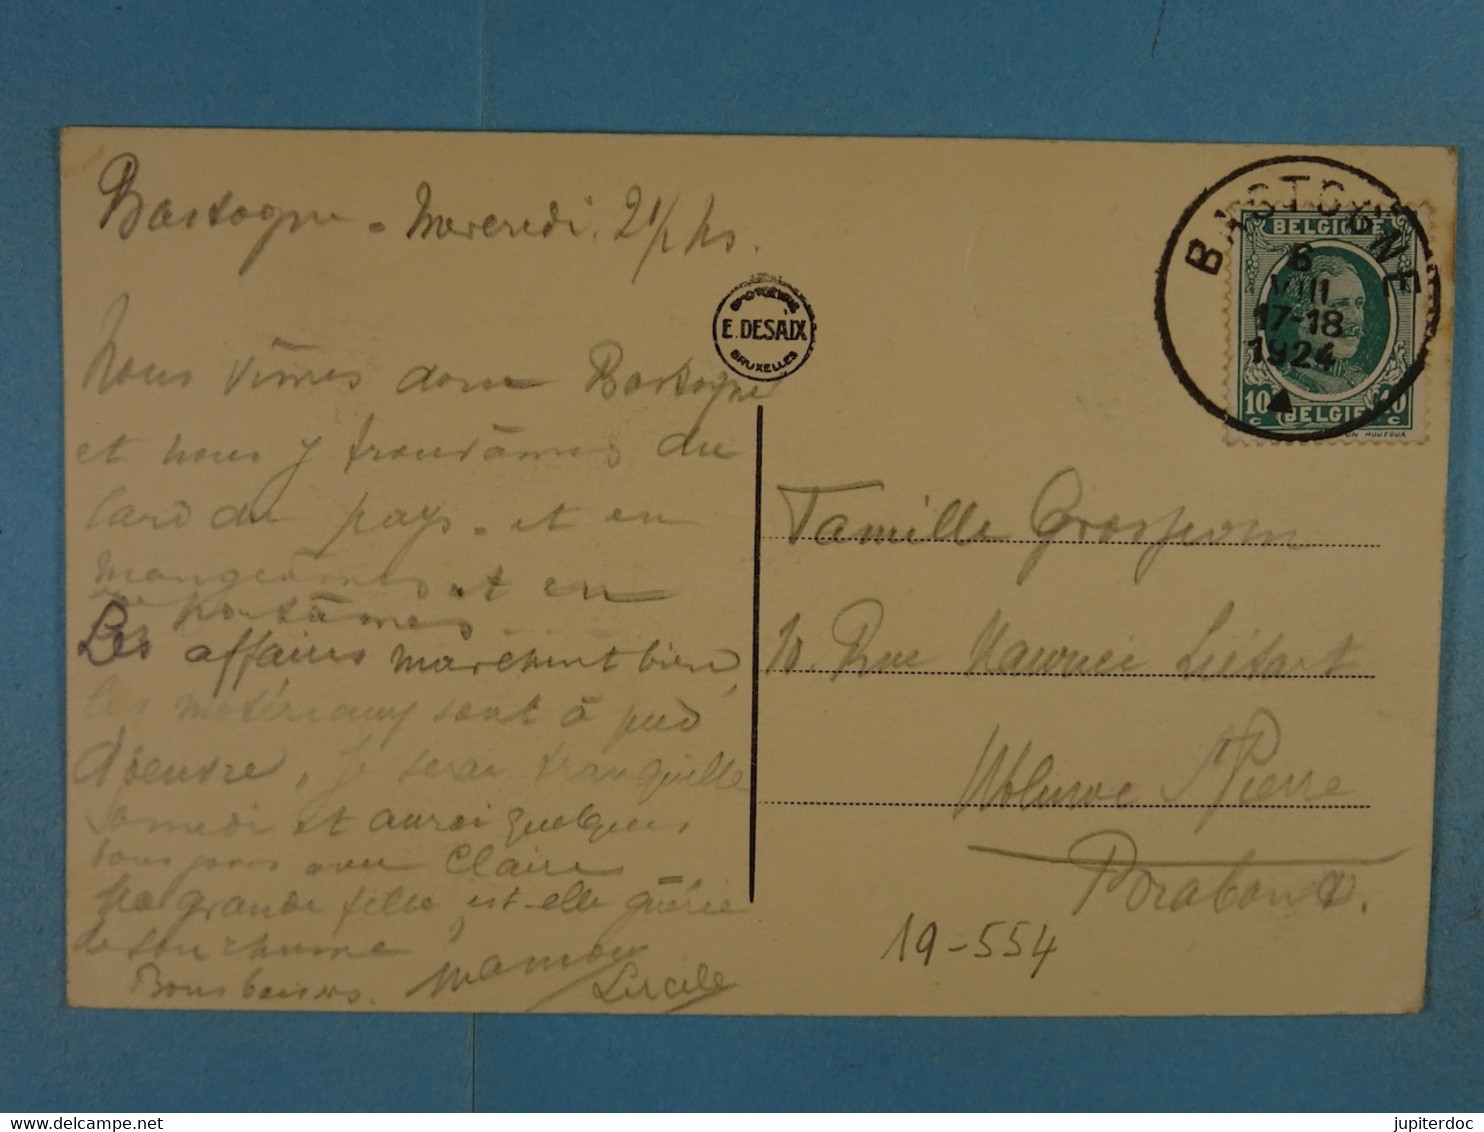 Bastogne - Mercredi. 2 1/2 hs.
Nous vîmes donc Bastogne
et nous y trouvâmes du
lard du pays - et en
mangeâmes et en
portâmes
Les affaires marchent bien,
les matériaux sont à pied
d'oeuvre, je serai tranquille
samedi et aurai quelques
bons jours avec Claire
Ma grande fille, est-elle guérie
de son rhume
Bons baisers. Maman
Lucile
E. DESAIX
BRUXELLES
BASTOGNE
6
VIII
17-18
1924
BELGIQUE
10 c
10 c
BELGIË
Famille Grosjean
10. Rue Maurice Liétart
Woluwe St Pierre
Brabant.
19-554
jupiterdoc
www.delcampe.net